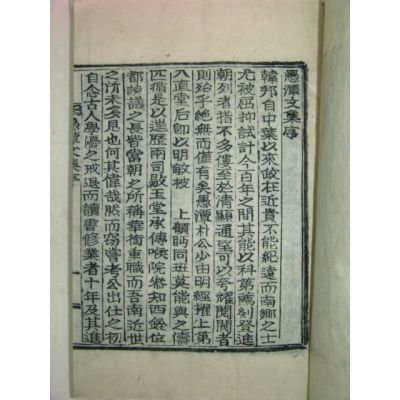 愚潭文集序
韓邦自中葉以來政在近貴不能紀遠而南鄉之士
尤被屈抑試計今百年之間其能以科第薦剡登進
朝列者指不多僂至於清顯通望可以夸耀閭閈者
則殆乎絕無而僅有矣愚潭朴公少由明經擢上第
入直堂后卽以明敏被 上顧眄同班莫能與之儔
匹循是以進歷兩司敭玉堂承傳喉院叅知西銓位
都諫議之長皆當朝之所稱華銜重職而吾南近世
之所未多見也何其偉哉然而窃嘗考公出仕之初
自念古人學優之戒退而讀書修業者十年及其進